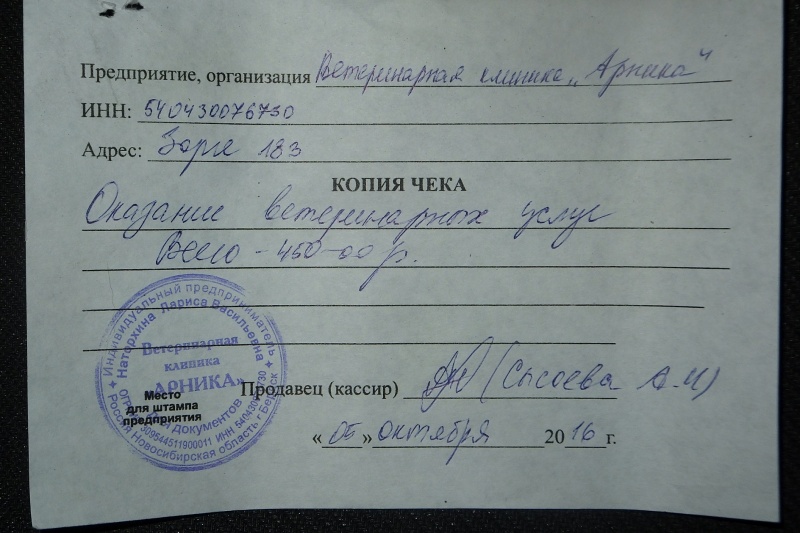 Предприятие, организация Ветеринарная клиника „Арника"
ИНН: 540430076730
Адрес: Зорге 183
КОПИЯ ЧЕКА
Оказание ветеринарных услуг
Всего - 450-00 р.
Индивидуальный предприниматель
Наторхина Лариса Васильевна
Ветеринарная
клиника
«АРНИКА»
Для документов
ОГРН 309544511900011 ИНН 540430076730
Россия Новосибирская область г Бердск
Место
для штампа
предприятия
Продавец (кассир) (Сысоева А.И)
« 05 » октября 2016 г.